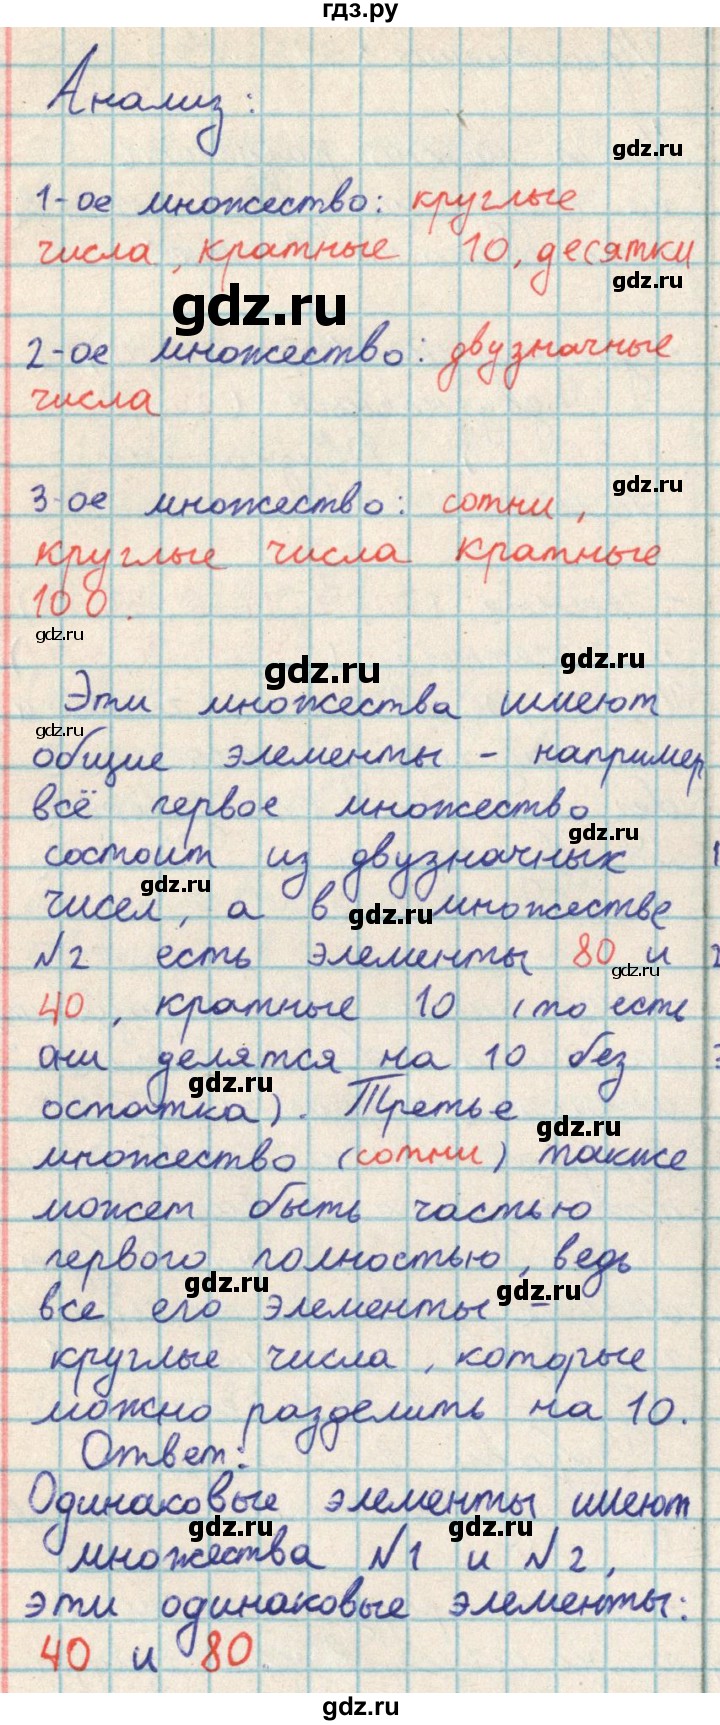 гдз.ру
Анализ:
gdz.ru
1-ое множество: круглые
числа, кратные 10, десятки
gdz.ru
gdz.ru
2-ое множество: двузначные
числа
gdz.ru
3-ое множество: сотни,
круглые числа кратные
100.
gdz.ru
gdz.ru
gdz.ru
Эти множества имеют
gdz.ru
общие элементы - например
всё первое множество
gdz.ru
состоит из двузначных
gdz.ru
чисел, а в множестве
gdz.ru
№2 есть элементы 80 и
gdz.ru
40, кратные 10 (то есть
они делятся на 10 без
gdz.ru
остатка). Третье
gdz.ru
множество (сотни) также
может быть частью
первого полностью, ведь
gdz.ru
gdz.ru
все его элементы -
круглые числа, которые
можно разделить на 10.
Ответ:
Одинаковые элементы имеют
gdz.ru
gdz.ru
множества №1 и №2,
эти одинаковые элементы:
gdz.ru
40 и 80
gdz.ru
gdz.ru